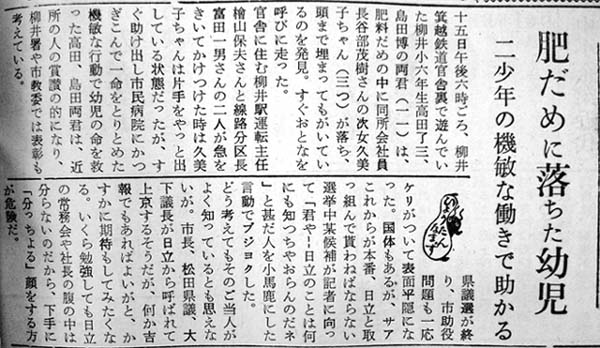 肥だめに落ちた幼児
二少年の機敏な働きで助かる
十五日午後六時ごろ、柳井
箕越鉄道官舎裏で遊んでい
た柳井小六年生高田了三、
島田博の両君(一一)は、
肥料だめの中に同所会社員
長谷部茂樹さんの次女久美
子ちゃん(三つ)が落ち、
頭まで埋まってもがいてい
るのを発見。すぐおとなを
呼びに走った。
官舎に住む柳井駅運転主任
檜山保夫さんと線路分区長
富田一男さんの二人が急を
きいてかけつけた時は久美
子ちゃんは片手をやっと出
している状態だったが、す
ぐ助け出し市民病院にかつ
ぎこんで一命をとりとめた
機敏な行動で幼児の命を救
った高田、島田両君は、近
所の人の賞讃の的になり、
柳井署や市教委では表彰も
考えている。
県議選が終
り、市助役
問題も一応
ケリがついて表面平隠にな
った。国体もあるが、サア
これからが本番、日立と取
っ組んで貰わねばならない
選挙中某候補が記者に向っ
て「君やー日立のことは何
にも知つちやおらんのだネ
」と甚だ人を小馬鹿にした
言動でブジヨクした。
どう考えてもそのご当人が
よく知っているとも思えな
いが。市長、松田県議、大
下議長が日立から呼ばれて
上京するそうだが、何か吉
報でもあればよいがと、か
すかに期待もしてみたくな
る。いくら勉強しても日立
の常務会や社長の腹の中は
分らないのだから、下手に
「分っちょる」顔をする方
が危険だ。